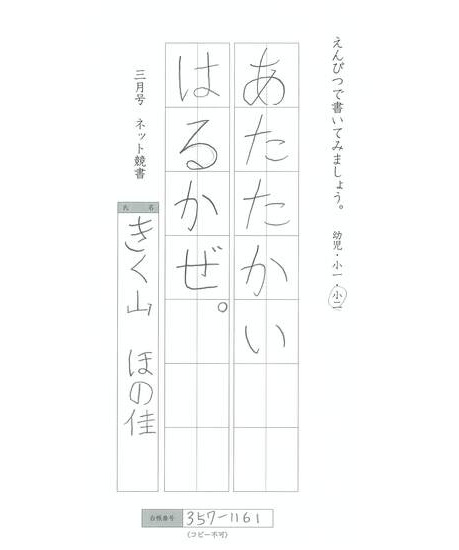 えんぴつで書いてみましょう。 幼児・小一・小二
あたたかい
はるかぜ。
三月号 ネット競書
氏名
きく山 ほの佳
台帳番号 357-1161
(コピー不可)